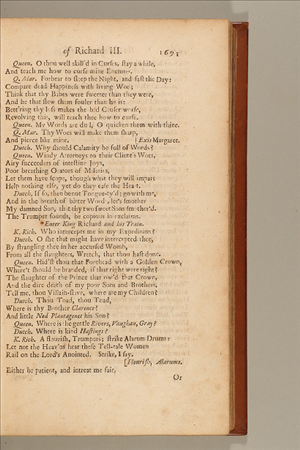 of Richard III. 1691
Queen. O thou well skill'd in Curses, stay a while,
And teach me how to curse mine Enemies.
Q. Mar. Forbear to sleep the Night, and fast the Day:
Compare dead Happiness with living Woe;
Think that thy Babes were sweeter than they were,
And he that slew them fouler than he is:
Bett'ring thy loss makes the bad Causer worse,
Revolving this, will teach thee how to curse.
Queen. My Words are dull, O quicken them with thine.
Q. Mar. Thy Woes will make them sharp,
And pierce like mine. [Exit Margaret.
Dutch. Why should Calamity be full of Words?
Queen. Windy Attorneys to their Client's Woes,
Airy succeeders of intestine Joys,
Poor breathing Orators of Miseries,
Let them have scope, though what they will impart
Help nothing else, yet do they ease the Heart.
Dutch. If so, then be not Tongue-ty'd; go with me,
And in the breath of bitter Word, let's smother
My damned Son, that thy two sweet Sons smother'd.
The Trumpet sounds, be copious in exclaims.
Enter King Richard and his Train.
K. Rich. Who intercepts me in my Expedition?
Dutch. O she that might have intercepted thee,
By strangling thee in her accursed Womb,
From all the slaughters, Wretch, that thou hast done.
Queen. Hid'st thou that Forehead with a Golden Crown,
Where't should be branded, if that right were right?
The slaughter of the Prince that ow'd that Crown,
And the dire death of my poor Sons and Brothers.
Tell me, thou Villain-slave, where are my Children?
Dutch. Thou Toad, thou Toad,
Where is thy Brother Clarence?
And little Ned Plantagenet his Son?
Queen. Where is the gentle Rivers, Vaughan, Gray?
Dutch. Where is kind Hastings?
K. Rich. A flourish, Trumpets; strike Alarum Drums:
Let not the Heav'ns hear these Tell-tale Women
Rail on the Lord's Anointed. Strike, I say.
[Flourish, Alarums.
Either be patient, and intreat me fair,
Or